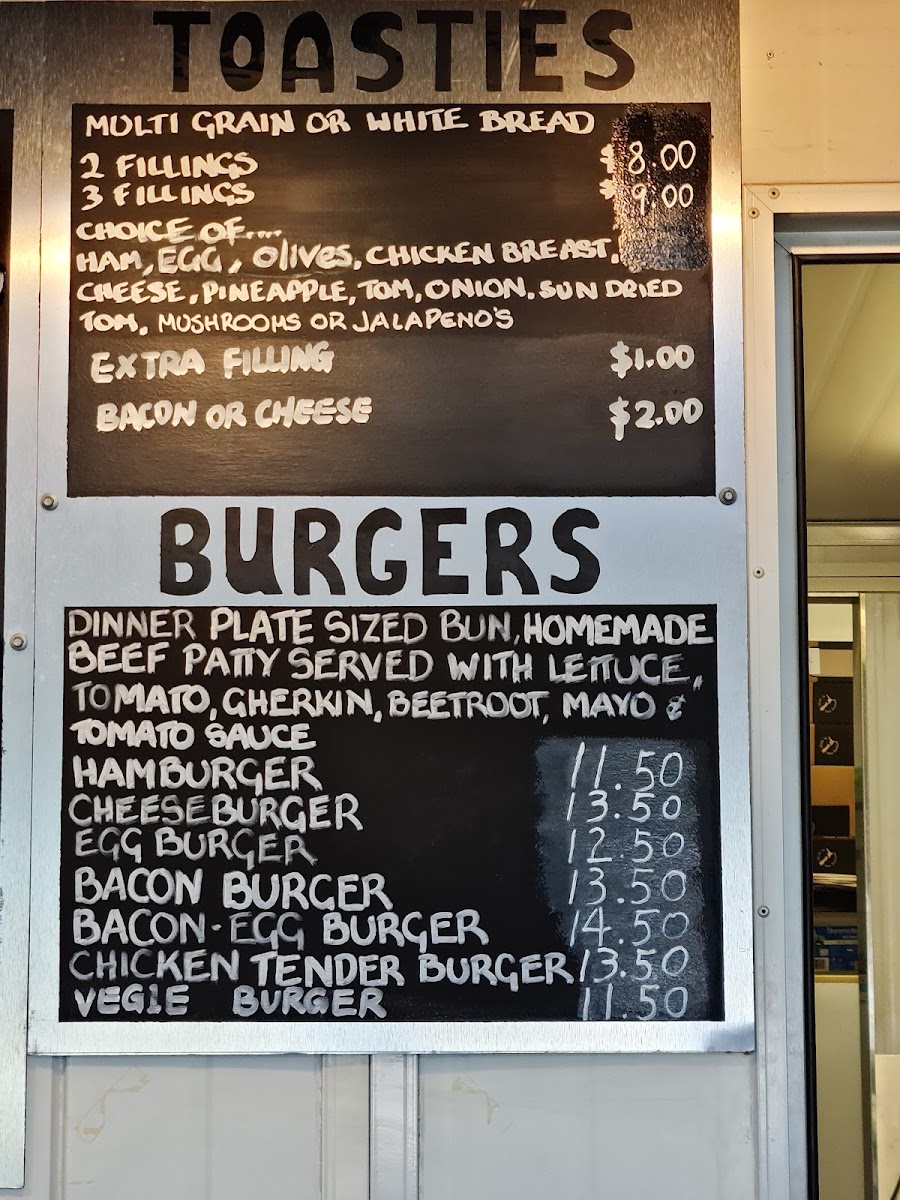 TOASTIES
MULTI GRAIN OR WHITE BREAD
2 FILLINGS $8.00
3 FILLINGS $9.00
CHOICE OF....
HAM, EGG, Olives, CHICKEN BREAST,
CHEESE, PINEAPPLE, TOM, ONION. SUN DRIED
TOM, MUSHROOMS OR JALAPENO'S
EXTRA FILLING $1.00
BACON OR CHEESE $2.00
BURGERS
DINNER PLATE SIZED BUN, HOMEMADE
BEEF PATTY SERVED WITH LETTUCE,
TOMATO, GHERKIN, BEETROOT, MAYO &
TOMATO SAUCE
HAMBURGER 11.50
CHEESEBURGER 13.50
EGG BURGER 12.50
BACON BURGER 13.50
BACON-EGG BURGER 14.50
CHICKEN TENDER BURGER 13.50
VEGIE BURGER 11.50